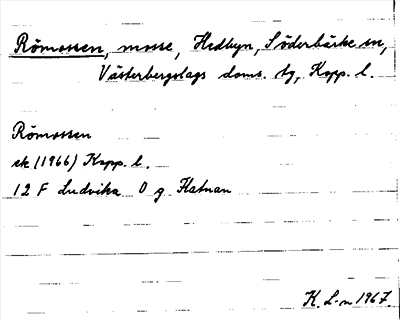 Römossen, mosse, Hedbyn, Söderbärke sn,
Västerbergslags doms. tg, Kopp. l.
Römossen
ek (1966) Kopp. l.
12 F Ludvika 0 g Flatnan
K. L-n 1967.